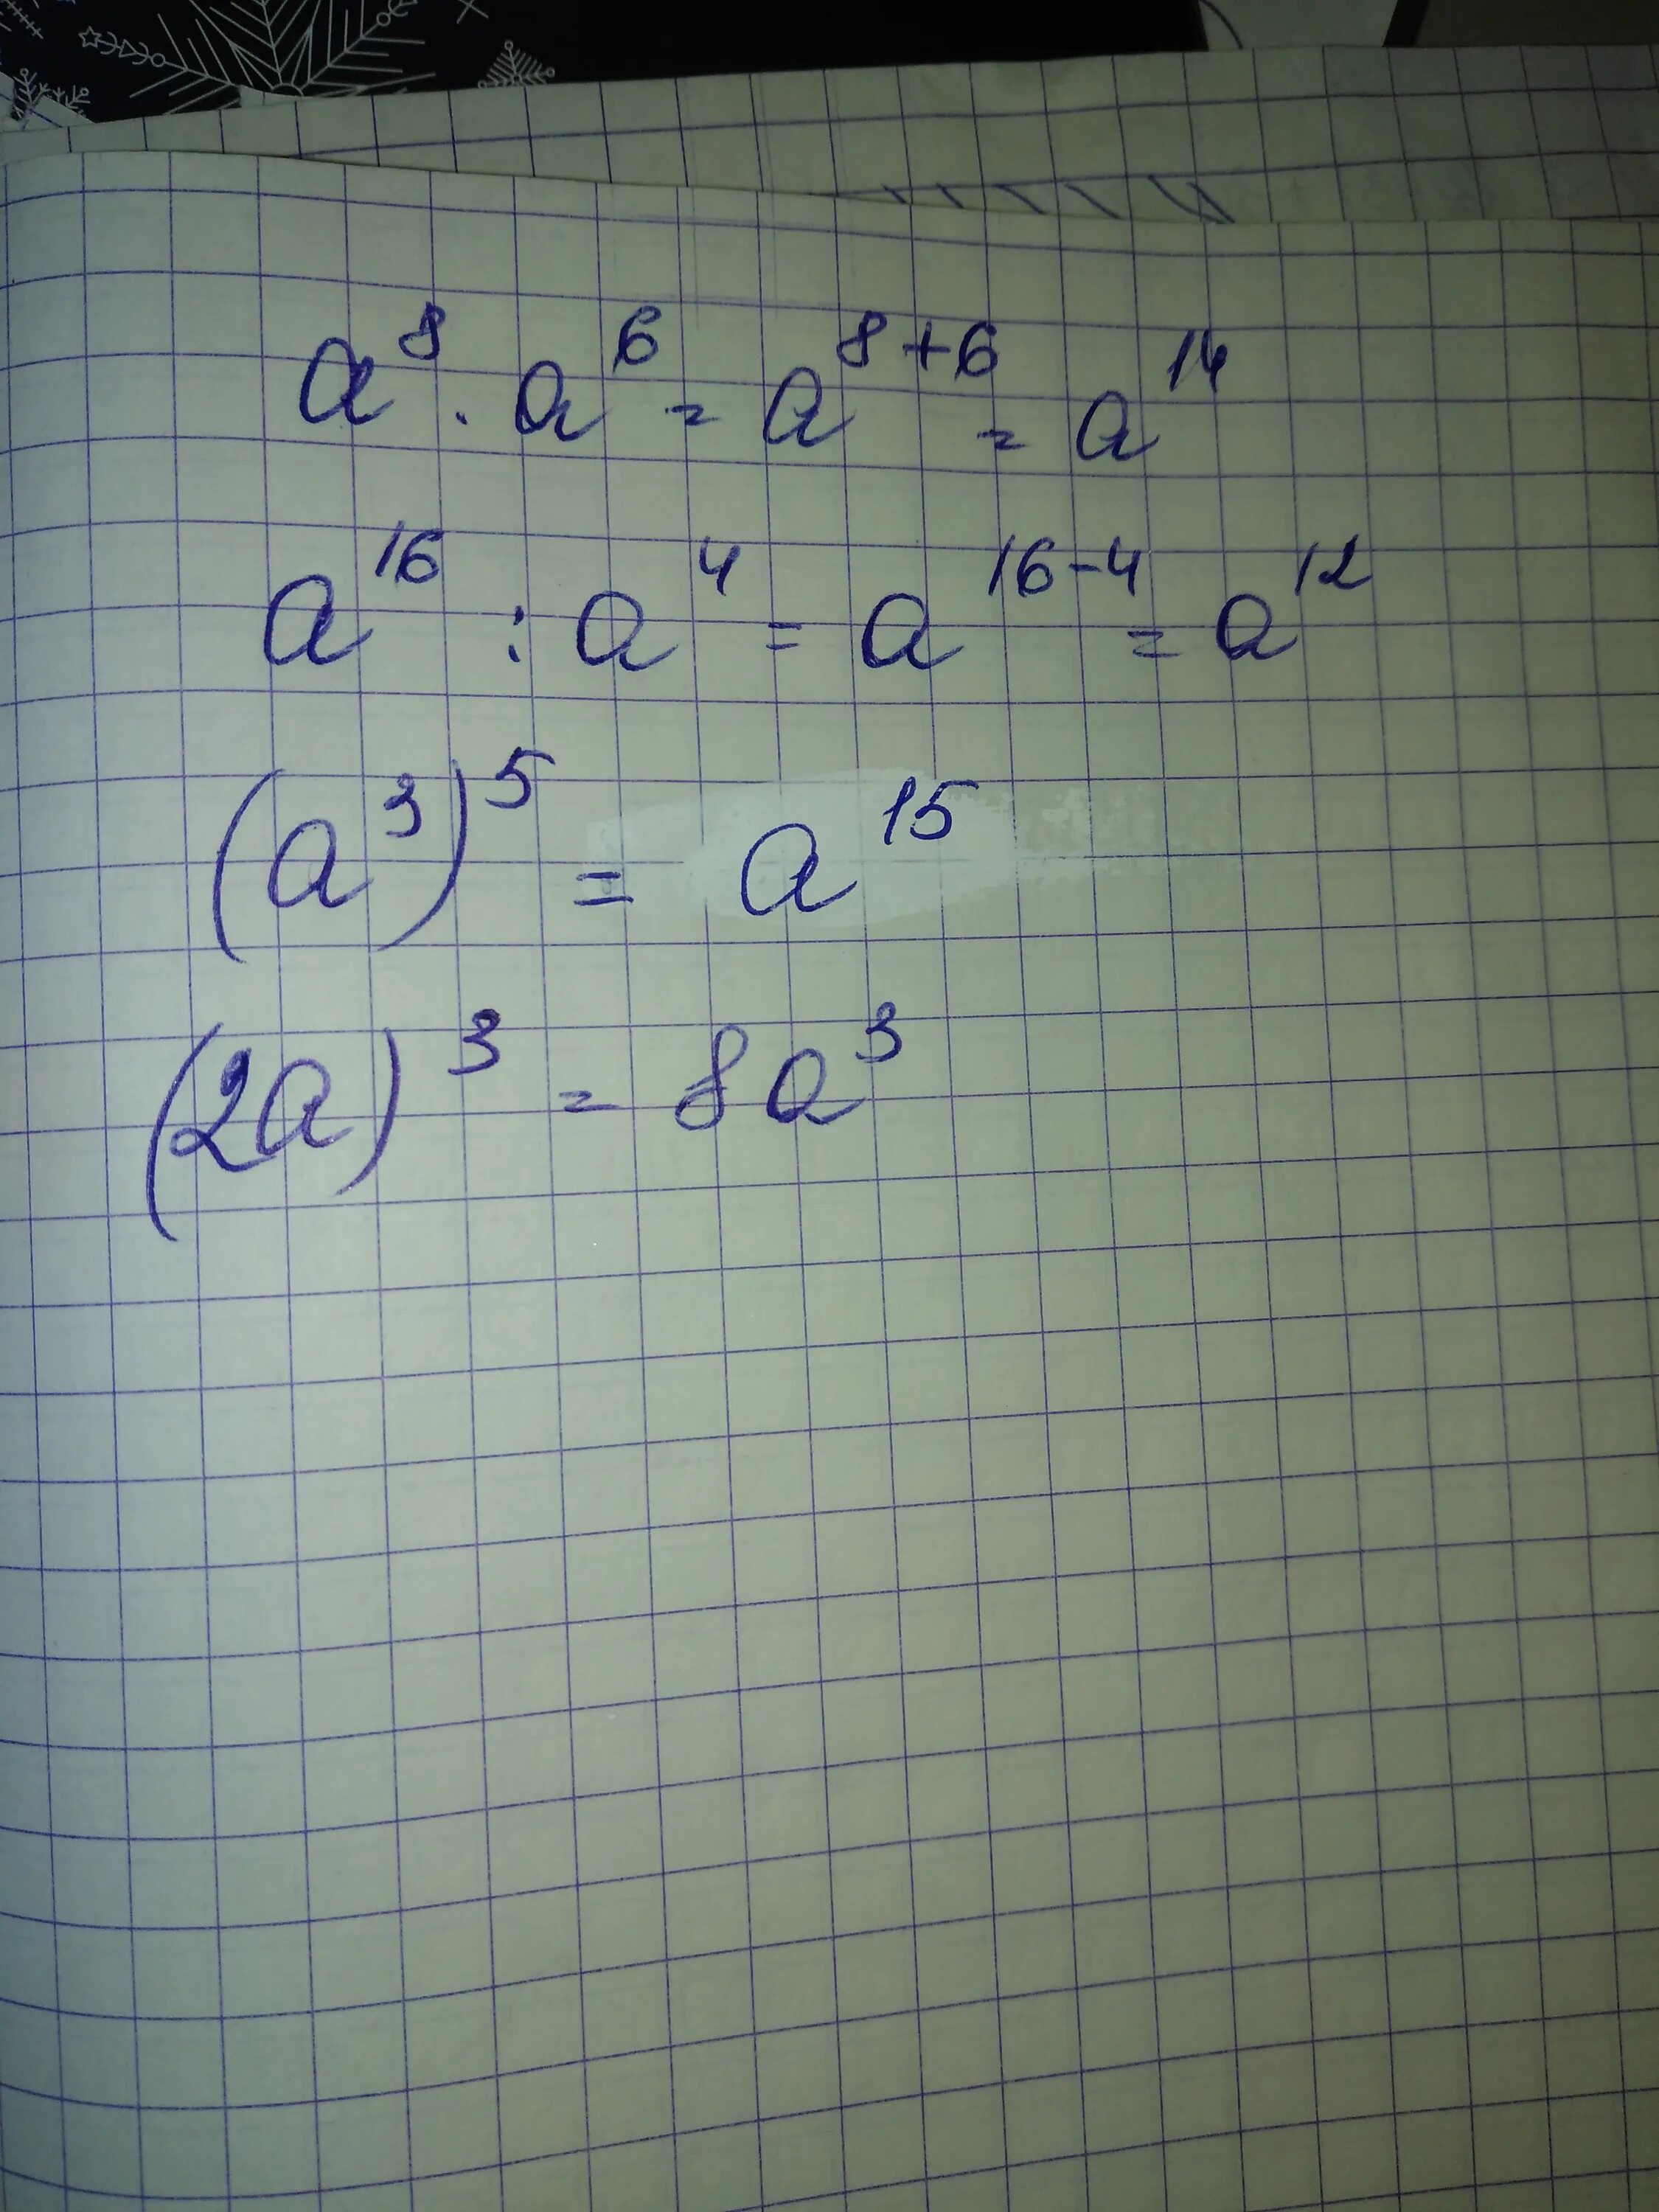 a⁸ · a⁶ = a⁸⁺⁶ = a¹⁴
a¹⁶ : a⁴ = a¹⁶⁻⁴ = a¹²
(a³)⁵ = a¹⁵
(2a)³ = 8a³